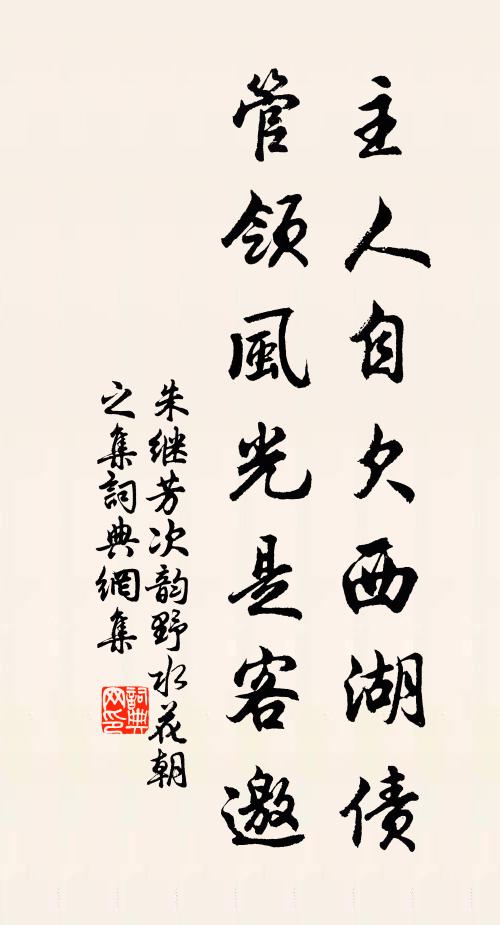 主人自欠西湖债
管领風光是客邀
朱继芳次韵野水花朝
之集詞典網集
詞典网印